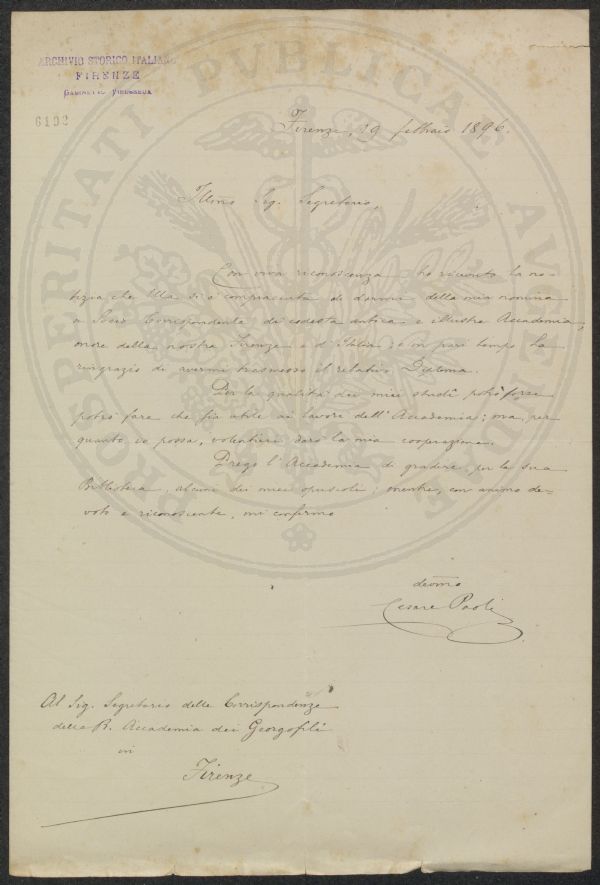 ARCHIVIO STORICO ITALIANO
FIRENZE
GABINETTO VIEUSSEUX
6192
PROSPERITATI PVBLICAE AVGENDAE
Firenze, 19 febbraio 1896.
Illmo Sig. Segretario,
Con viva riconoscenza ho ricevuto la no-
tizia che Ella si è compiaciuta di darmi della mia nomina
a Socio Corrispondente di codesta antica e illustre Accademia,
onore della nostra Firenze e d'Italia; e in pari tempo La
ringrazio di avermi trasmesso il relativo Diploma.
Per la qualità dei miei studi potrò forse
potrò fare che sia utile ai lavori dell'Accademia; ma, per
quanto io possa, volentieri darò la mia cooperazione.
Prego l'Accademia di gradire, per la sua
Biblioteca, alcuni dei miei opuscoli; mentre, con animo de-
voto e riconoscente, mi confermo
devmo
Cesare Paoli
Al Sig. Segretario delle Corrispondenze
della R. Accademia dei Georgofili
in
Firenze